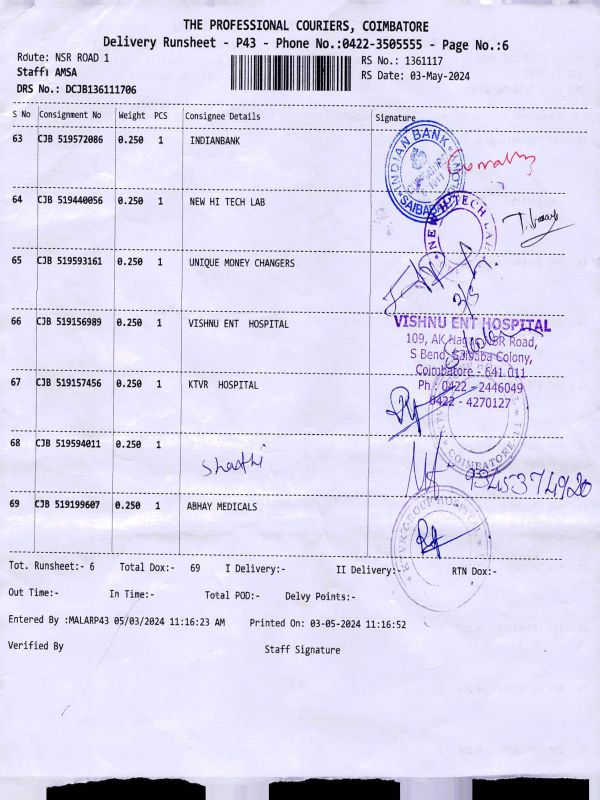 THE PROFESSIONAL COURIERS, COIMBATORE
Delivery Runsheet - P43 - Phone No.:0422-3505555 - Page No.:6
Route: NSR ROAD 1
RS No.: 1361117
Staff: AMSA
RS Date: 03-May-2024
DRS No.: DCJB136111706
S No Consignment No Weight PCS Consignee Details Signature
63 CJB 519572086 0.250 1 INDIANBANK
INDIAN BANK
64 CJB 519440056 0.250 1 NEW HI TECH LAB
65 CJB 519593161 0.250 1 UNIQUE MONEY CHANGERS
66 CJB 519156989 0.250 1 VISHNU ENT HOSPITAL
VISHNU ENT HOSPITAL
109, AK Nagar, NSR Road,
S Bend, Saibaba Colony,
Coimbatore - 641 011
Ph : 0422 - 2446049
0422 - 4270127
67 CJB 519157456 0.250 1 KTVR HOSPITAL
COIMBATORE
68 CJB 519594011 0.250 1
Shanthi
69 CJB 519199607 0.250 1 ABHAY MEDICALS
Tot. Runsheet:- 6 Total Dox:- 69 I Delivery:- II Delivery:- RTN Dox:-
Out Time:- In Time:- Total POD:- Delvy Points:-
Entered By :MALARP43 05/03/2024 11:16:23 AM Printed On: 03-05-2024 11:16:52
Verified By Staff Signature